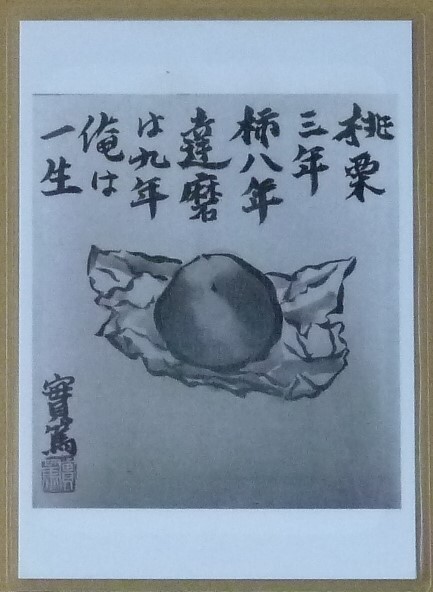 桃栗
三年
柿八年
達磨
は九年
俺は
一生
實篤